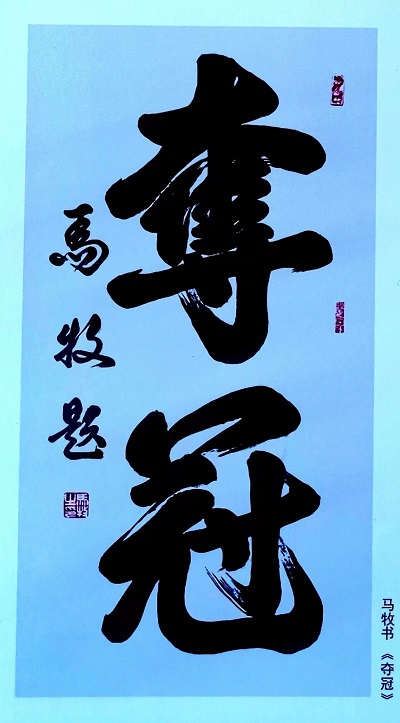 奪冠
馬牧題
马牧书《夺冠》